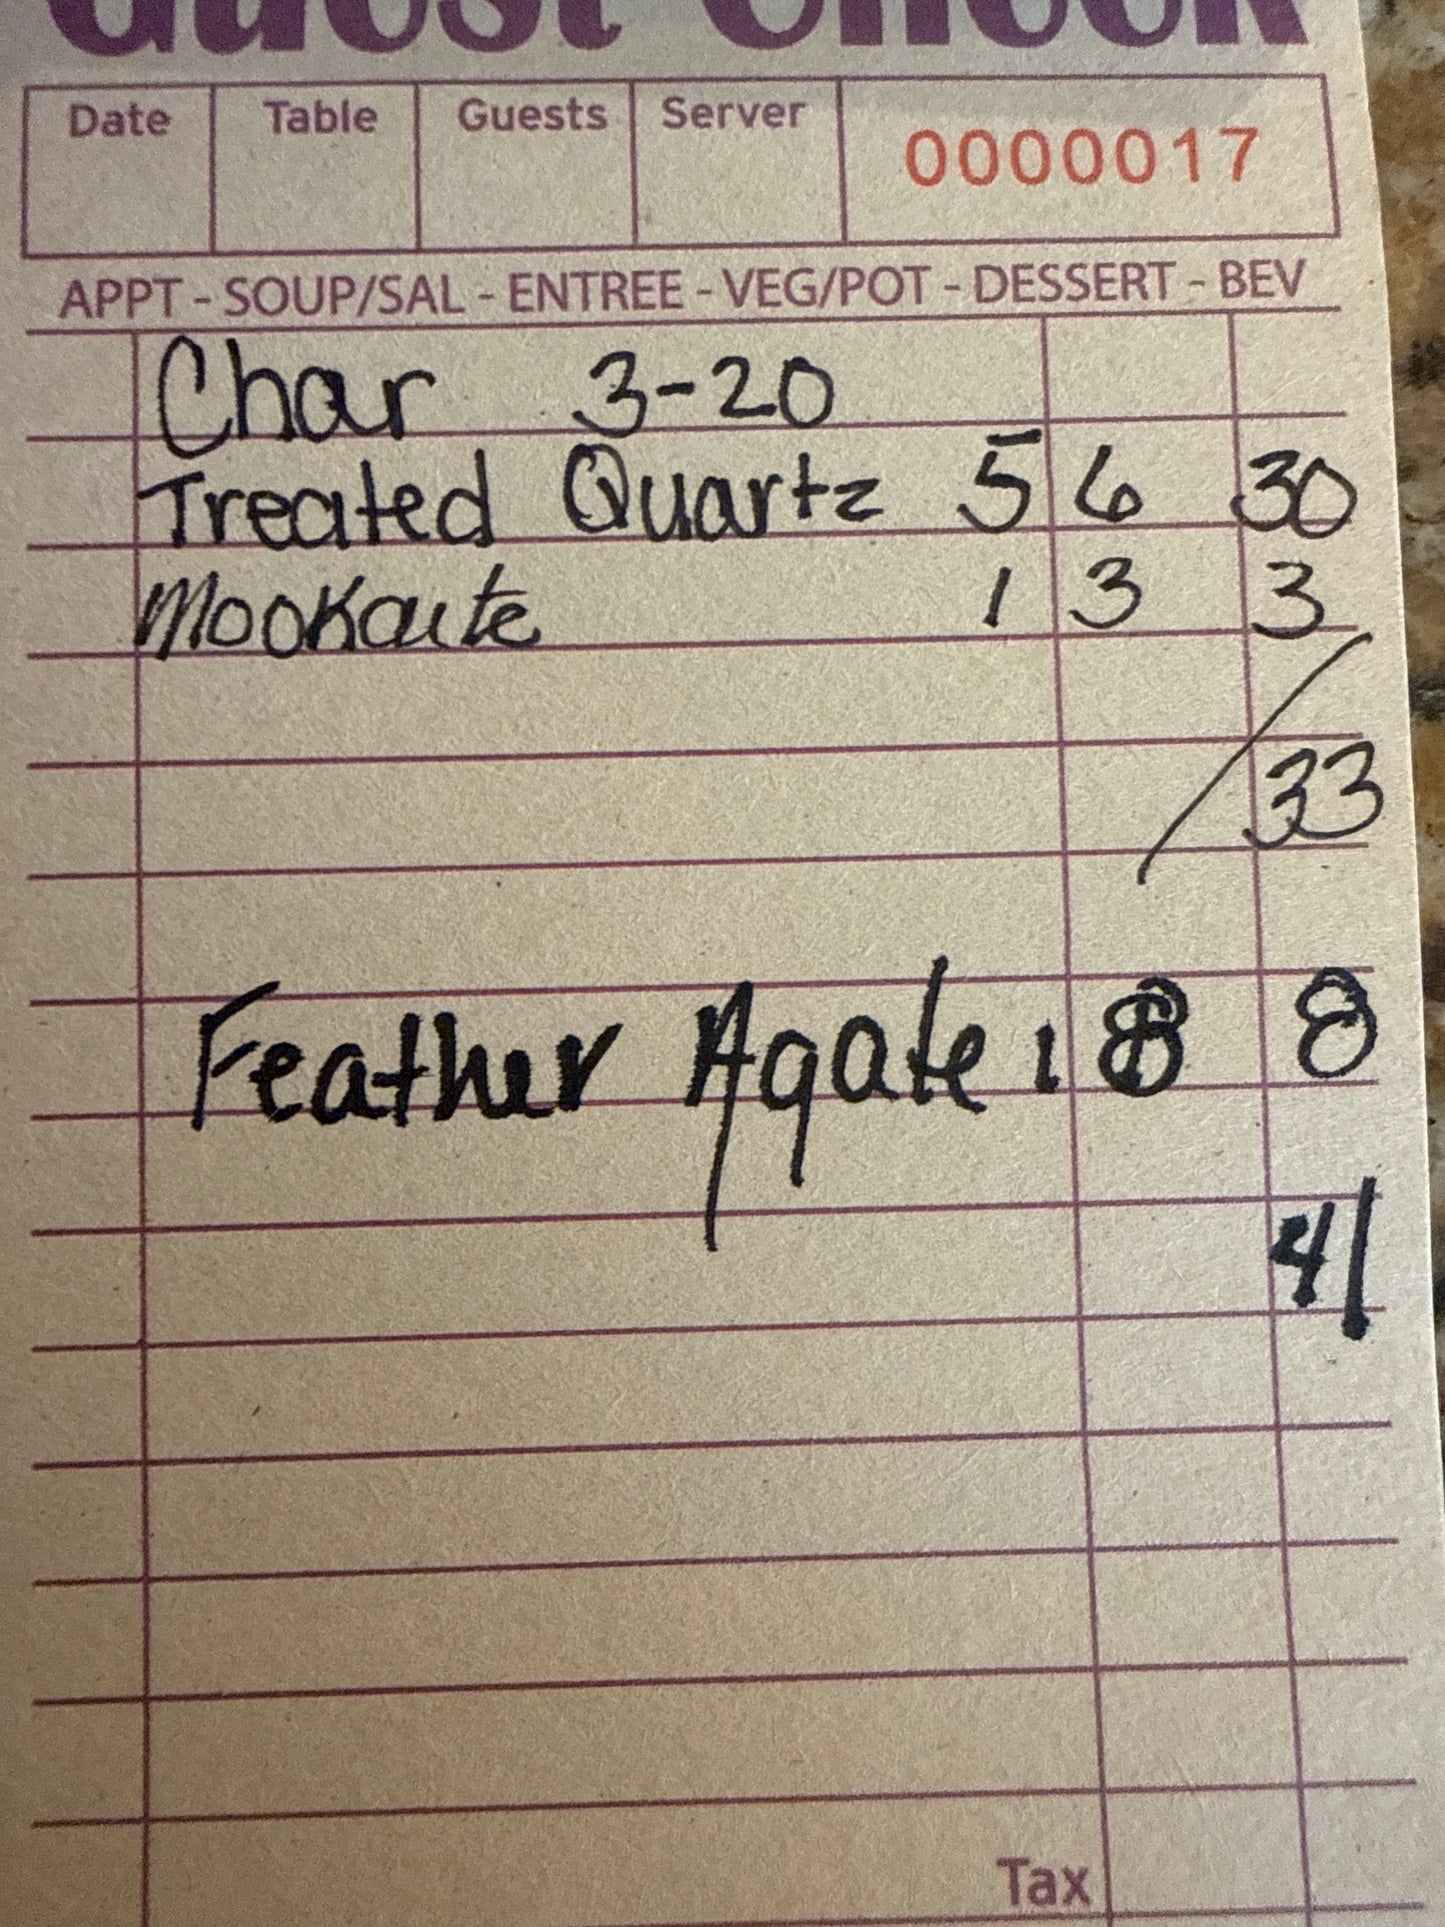 Guest Check
Date Table Guests Server 0000017
APPT - SOUP/SAL - ENTREE - VEG/POT - DESSERT - BEV
Char 3-20
Treated Quartz 5 6 30
Mookaite 1 3 3
33
Feather Agate 1 8 8
41
Tax